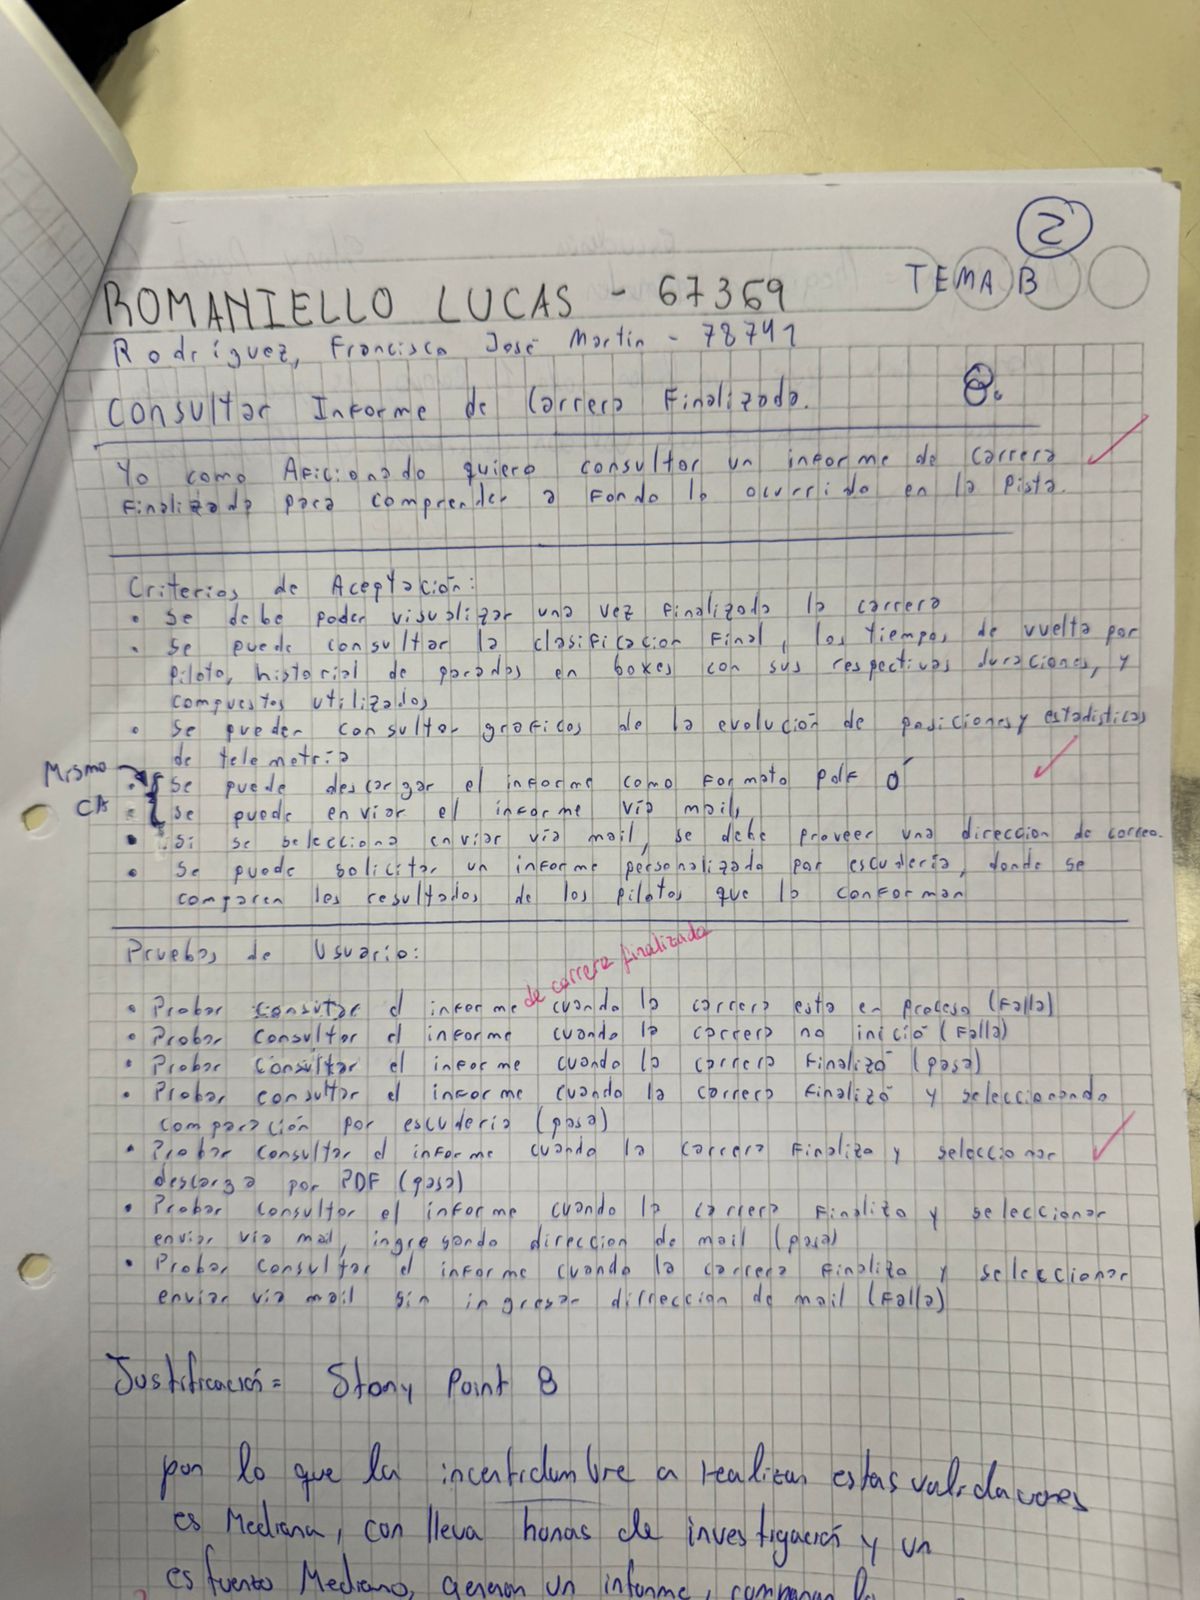 2
TEMA B
ROMANIELLO LUCAS - 67369
Rodríguez, Francisco José Martin - 78741
Consultar Informe de Carrera Finalizada.
8.
Yo como Aficionado quiero consultar un informe de carrera
Finalizada para comprender a fondo lo ocurrido en la pista.
Criterios de Aceptación:
• Se debe poder visualizar una vez finalizada la carrera
• Se puede consultar la clasificacion final, los tiempos de vuelta por
piloto, historial de paradas en boxes con sus respectivas duraciones, y
compuestos utilizados
• Se pueder consultar graficos de la evolución de posiciones y estadisticas
de telemetria
Mismo
CA
• Se puede descargar el informe como formato pdf ó
• se puede enviar el informe via mail,
• Si se selecciona enviar via mail, se debe proveer una direccion de correo.
• Se puede solicitar un informe personalizado por escuderia, donde se
comparen los resultados de los pilotos que la conforman
Pruebas de Usuario:
de carrera finalizada
• Probar consultar el informe cuando la carrera esta en proceso (Falla)
• Probar consultar el informe cuando la carrera no inició (Falla)
• Probar consultar el informe cuando la carrera finalizó (pasa)
• Probar consultar el informe cuando la carrera finalizó y seleccionando
comparación por escuderia (pasa)
• Probar consultar el informe cuando la carrera finalizo y seleccionar
descarga por PDF (pasa)
• Probar consultar el informe cuando la carrera finalizo y seleccionar
enviar via mail, ingresando direccion de mail (pasa)
• Probar consultar el informe cuando la carrera finalizo y seleccionar
enviar via mail sin ingresar dirreccion de mail (Falla)
Justificación= Story Point 8
por lo que la incertidumbre a realizar estas validaciones
es Mediana, conlleva horas de investigación y un
esfuerzo Mediano, generar un informe, comparar la